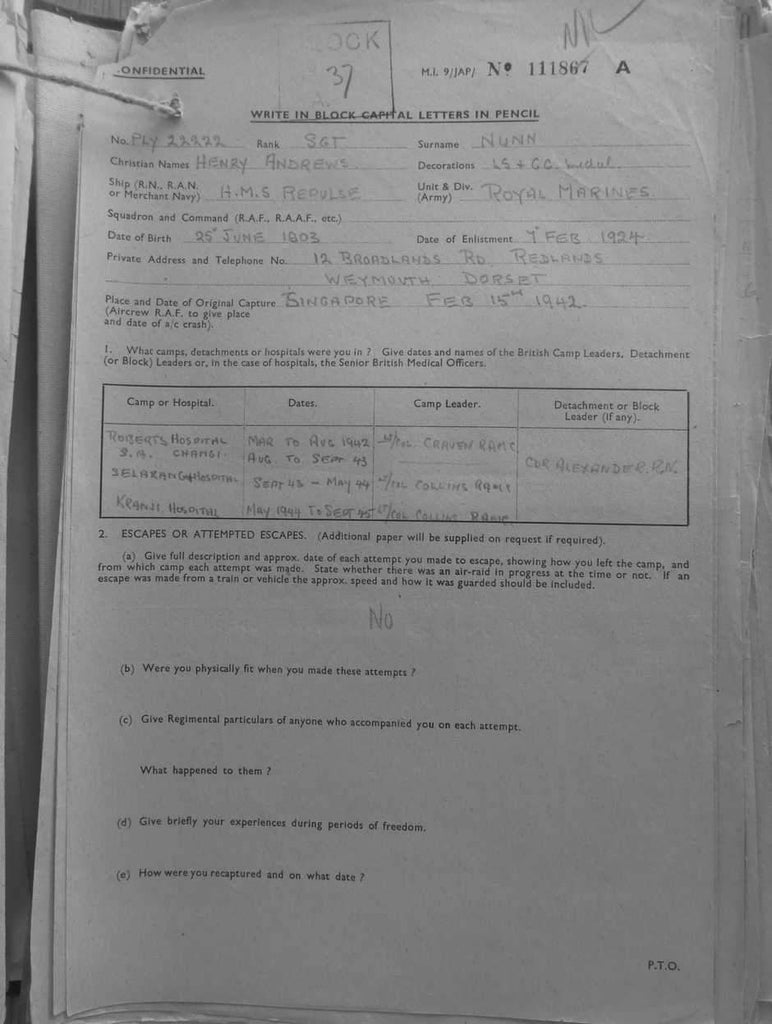 OCK
37
CONFIDENTIAL
M.I. 9/JAP/ Nº 111867 A
WRITE IN BLOCK CAPITAL LETTERS IN PENCIL
No. PLY 22222 Rank SGT Surname NUNN
Christian Names HENRY ANDREWS Decorations LS & GC Medal
Ship (R.N., R.A.N. or Merchant Navy) H.M.S REPULSE Unit & Div. (Army) ROYAL MARINES
Squadron and Command (R.A.F., R.A.A.F., etc.)
Date of Birth 25 JUNE 1903 Date of Enlistment 7 FEB 1924
Private Address and Telephone No. 12 BROADLANDS RD REDLANDS
WEYMOUTH DORSET
Place and Date of Original Capture SINGAPORE FEB 15TH 1942
(Aircrew R.A.F. to give place
and date of a/c crash).
1. What camps, detachments or hospitals were you in ? Give dates and names of the British Camp Leaders, Detachment
(or Block) Leaders or, in the case of hospitals, the Senior British Medical Officers.
Camp or Hospital. Dates. Camp Leader. Detachment or Block Leader (if any).
ROBERTS HOSPITAL MAR TO AUG 1942 LT/COL CRAVEN RAMC
S.A. CHANGI AUG TO SEPT 43 CDR ALEXANDER. R.N.
SELARANG HOSPITAL SEPT 43 - MAY 44 LT/COL COLLINS RAMC
KRANJI HOSPITAL MAY 1944 TO SEPT 45 LT/COL COLLINS RAMC
2. ESCAPES OR ATTEMPTED ESCAPES. (Additional paper will be supplied on request if required).
(a) Give full description and approx. date of each attempt you made to escape, showing how you left the camp, and
from which camp each attempt was made. State whether there was an air-raid in progress at the time or not. If an
escape was made from a train or vehicle the approx. speed and how it was guarded should be included.
NO
(b) Were you physically fit when you made these attempts ?
(c) Give Regimental particulars of anyone who accompanied you on each attempt.
What happened to them ?
(d) Give briefly your experiences during periods of freedom.
(e) How were you recaptured and on what date ?
P.T.O.